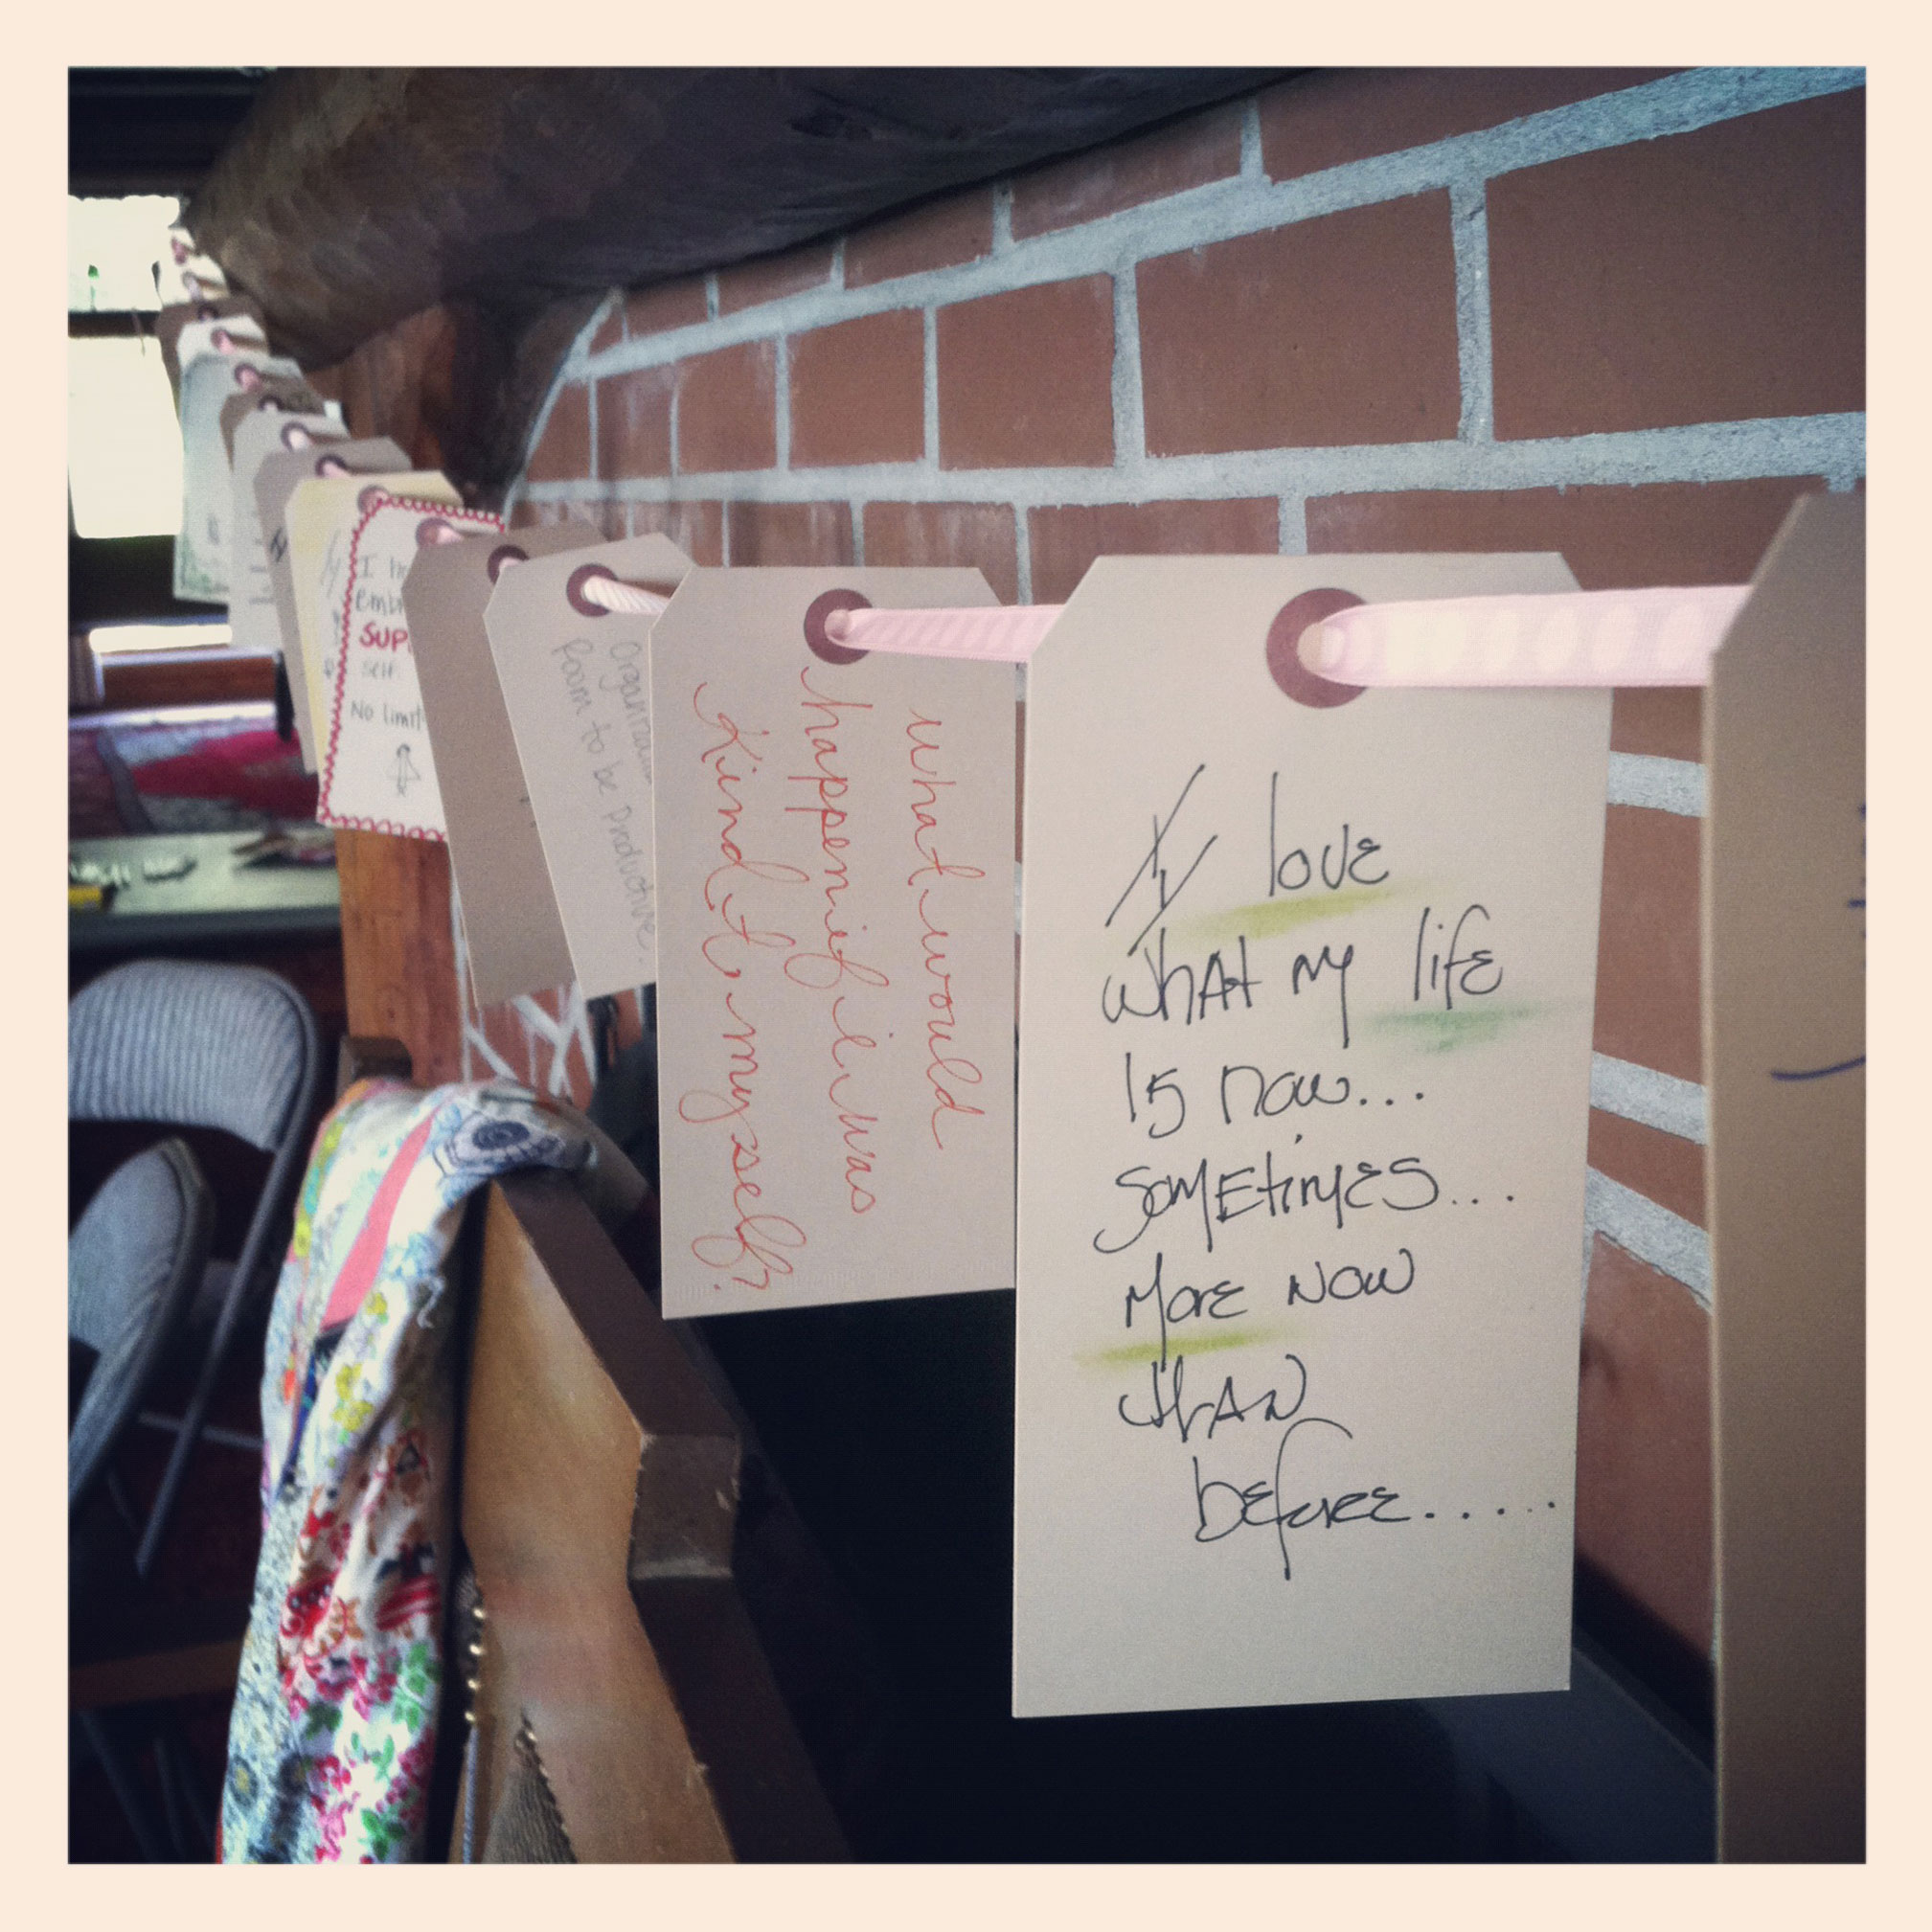 I love
what my life
is now...
sometimes...
more now
than
before.....
what would
happen if i was
Kind to myself?
room to be productive.
I
SUP
self.
No limit